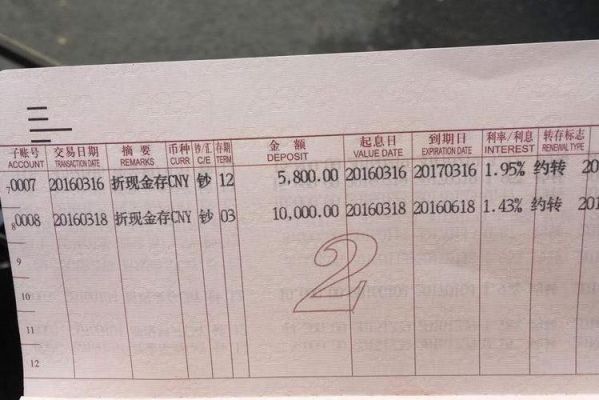 子账号 交易日期 摘要 币种 钞/汇 存期 金额 起息日 到期日 利率/利息 转存标志
ACCOUNT TRANSACTION DATE REMARKS CURR C/E TERM DEPOSIT VALUE DATE EXPIRATION DATE INTEREST RENEWAL TYPE
7 0007 20160316 折现金存 CNY 钞 12 5,800.00 20160316 20170316 1.95% 约转 20
8 0008 20160318 折现金存 CNY 钞 03 10,000.00 20160318 20160618 1.43% 约转 201
9
2
10
11
12